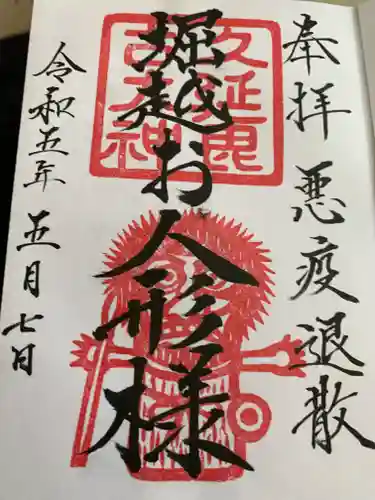 奉拝 悪疫退散
堀越お人形様
令和五年 五月七日